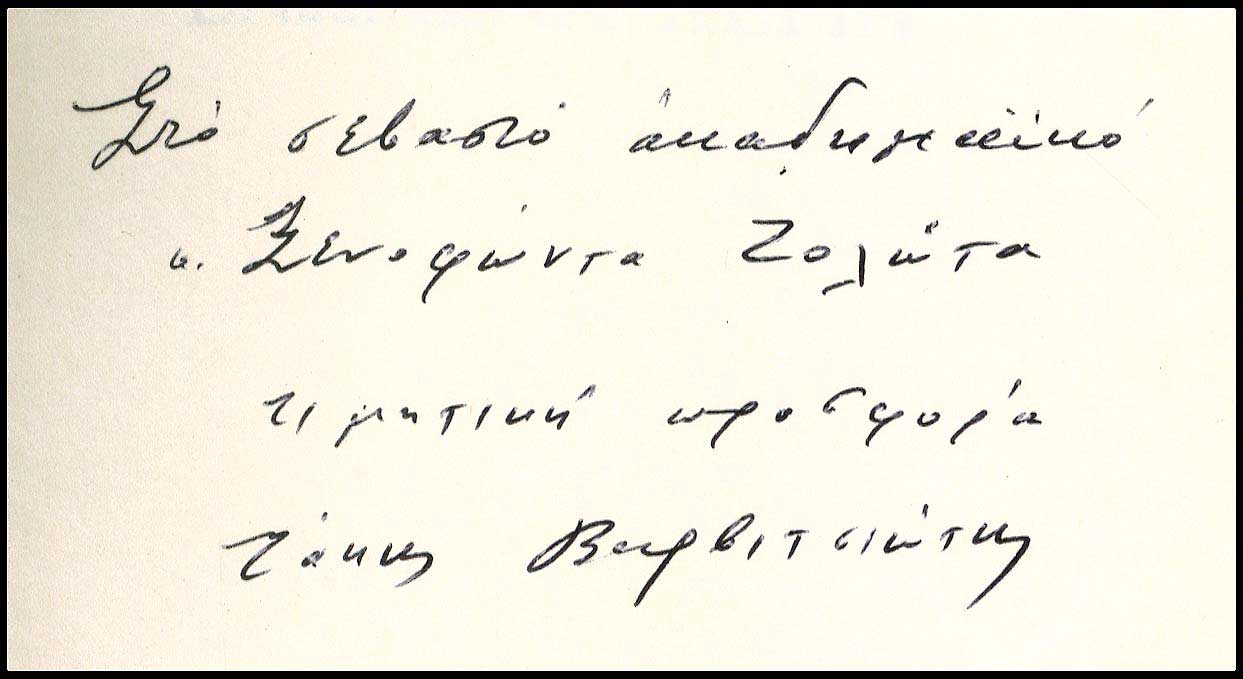 Στό σεβαστό ἀκαδημαϊκό
κ. Ξενοφώντα Ζολώτα
τιμητική προσφορά
Τάκης Βαρβιτσιώτης